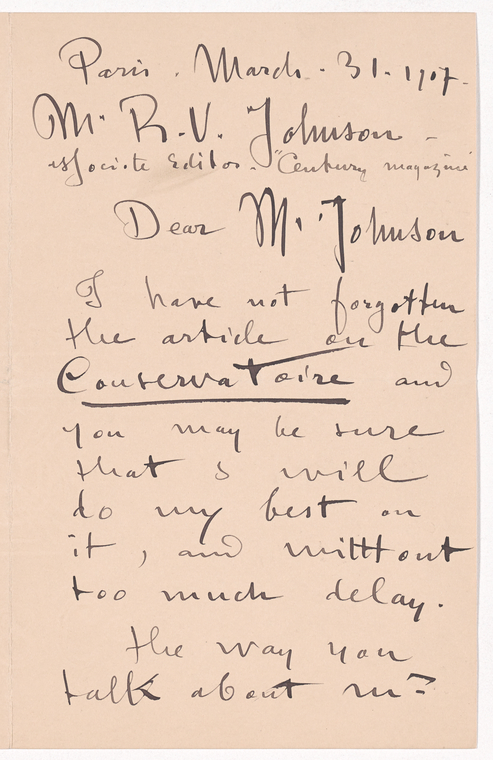 Paris . March . 31. 1907.
Mr R. V. Johnson -
associate Editor . "Century magazine"
Dear Mr Johnson
I have not forgotten
the article on the
Conservatoire and
you may be sure
that I will
do my best on
it, and witthout
too much delay.
the way you
talk about mr